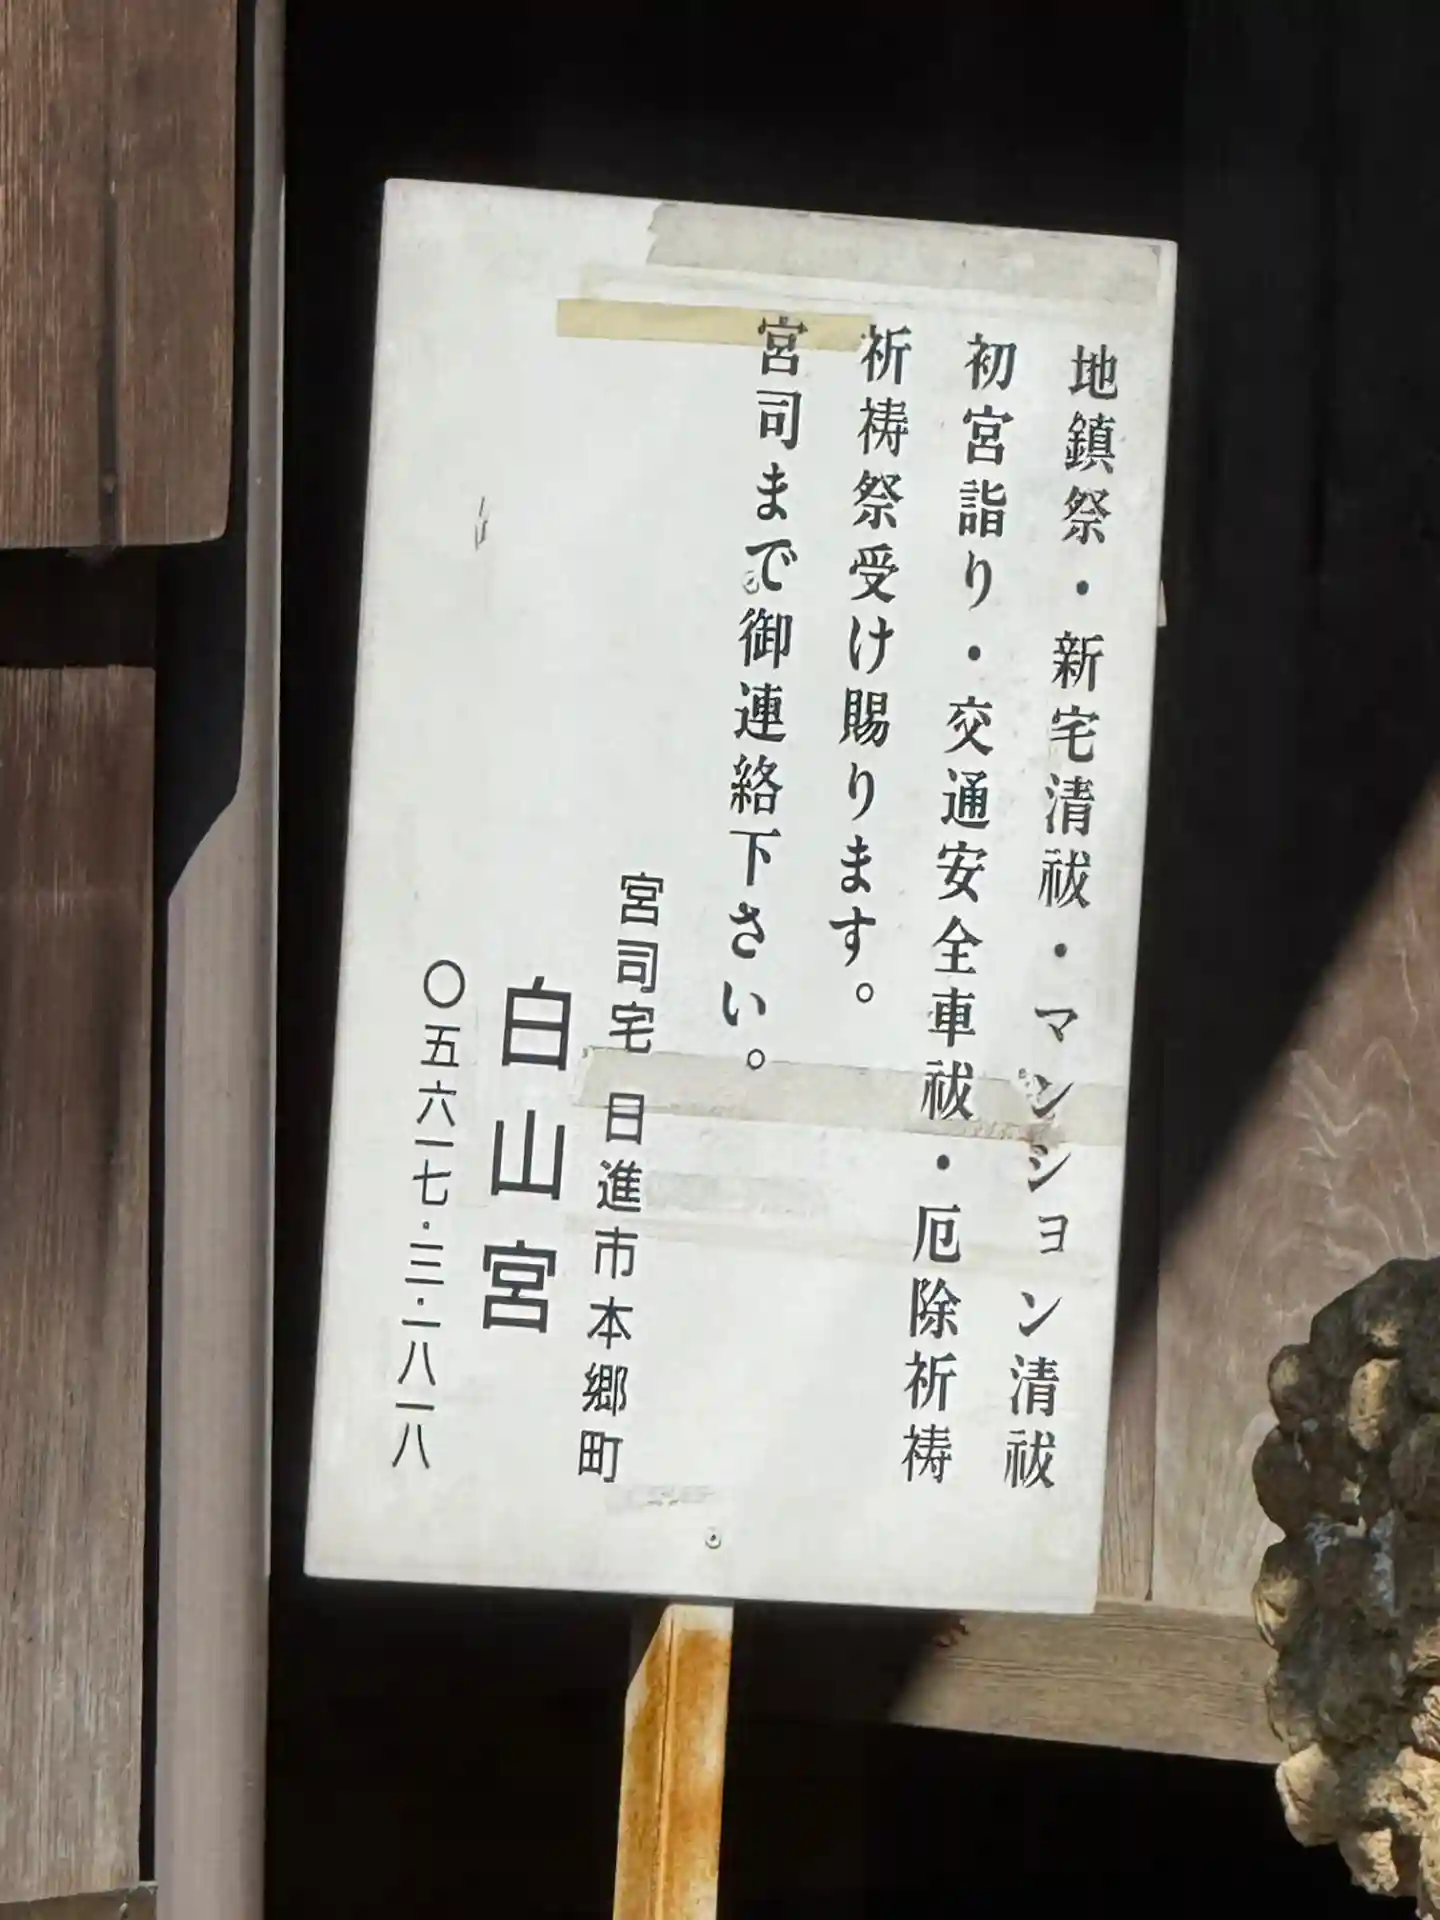 地鎮祭・新宅清祓・マンション清祓
初宮詣り・交通安全車祓・厄除祈祷
祈祷祭受け賜ります。
宮司まで御連絡下さい。
宮司宅 日進市本郷町
白山宮
〇五六一七・三・二八一八